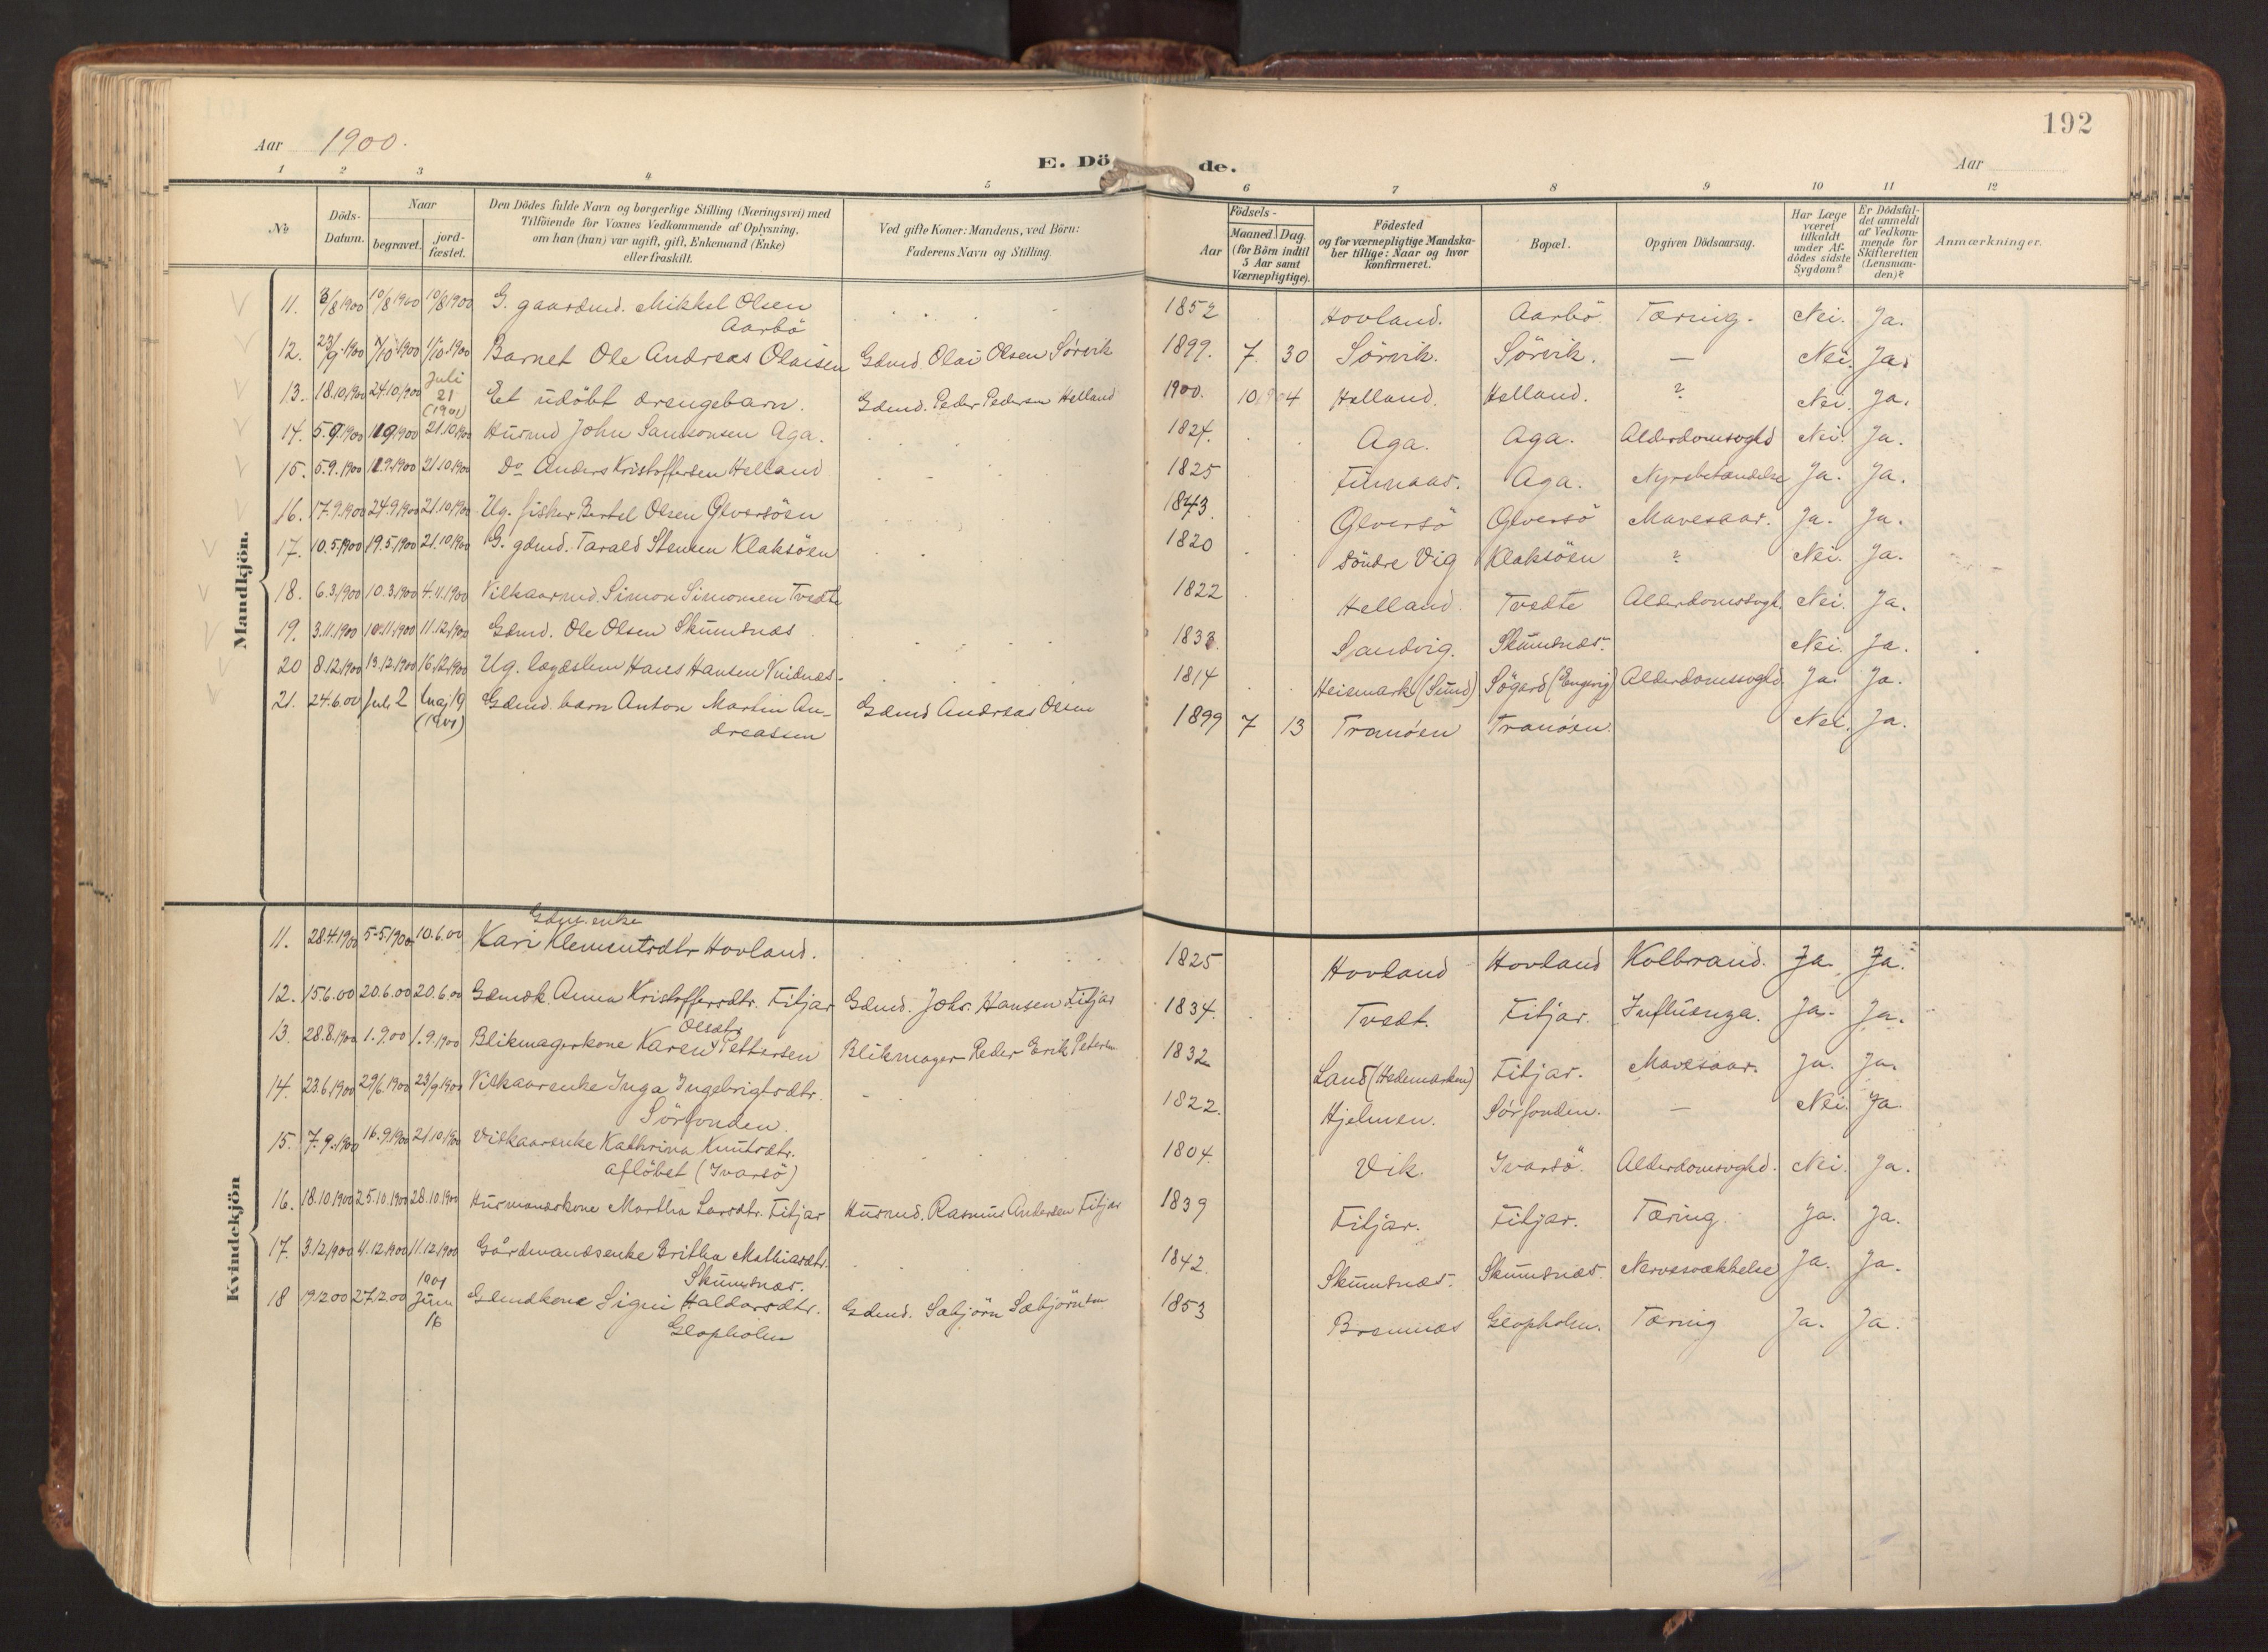 192
Aar 1900.
E. Dö de.
Aar
1 2 3 4 5 6 7 8 9 10 11 12
№
Döds-Datum.
Naar
begravet.
jord-fæstet.
Den Dödes fulde Navn og borgerlige Stilling (Næringsvei) med
Tilföiende for Voxnes Vedkommende af Oplysning,
om han (hun) var ugift, gift, Enkemand (Enke)
eller fraskilt.
Ved gifte Koner: Mandens, ved Börn:
Faderens Navn og Stilling.
Födsels-
Aar
Maaned. Dag.
(for Börn indtil
5 Aar samt
Værnepligtige).
Födested
og for værnepligtige Mandska-
ber tillige: Naar og hvor
konfirmeret.
Bopæl.
Opgiven Dödsaarsag.
Har Læge
været
tilkaldt
under Af-
dödes sidste
Sygdom?
Er Dödsfal-
det anmeldt
af Vedkom-
mende for
Skifteretten
(Lensman-
den)?
Anmærkninger.
Mandkjön.
11. 3/8 1900 10/8 1900 10/8 1900 G. gaardmd. Mikkel Olsen 1852 Hovland. Aarbö Tæring. Nei. Ja.
Aarbö
12. 23/9 1900 1/10 1900 1/10 1900 Barnet Ole Andreas Olaisen Gdmd. Olai Olsen Sörvik 1899. 7. 30 Sörvik. Sörvik. — Nei. Ja.
13. 18.10.1900 24.10.1900 Juli 21 (1901) Et udöbt drengebarn. Gdmd. Peder Pedersen Helland 1900. 10 4 Helland. Helland. ? Nei. Ja.
14. 5.9.1900 11.9.1900 21.10.1900 Husmd John Samsonsen Aga. 1824. Aga. Aga. Alderdomssvaghd Nei. Ja.
15. 5.9.1900 11.9.1900 21.10.1900 Do Anders Kristoffersen Helland 1825 Finnaas. Aga. Nyrebetændelse Ja. Ja.
16. 17.9.1900 24.9.1900 21.10.1900 Ug. fisker Bertel Olsen Gloersöen 1843. Gloersö Gloersö Mavesaar. Ja. Ja.
17. 10.5.1900 19.5.1900 21.10.1900 G. gdmd. Tarald Stensen Klaksöen 1820 Söndre Vig Klaksöen ? Nei. Ja.
18. 6.3.1900 10.3.1900 4.11.1900 Vilkaarmd. Simon Simonsen Tvedte 1822 Helland. Tvedte Alderdomssvagh. Nei. Ja.
19. 3.11.1900 10.11.1900 11.12.1900 Gdmd. Ole Olsen Skumsnæs 1833. Sandvig. Skumsnæs. Nei. Ja.
20 8.12.1900 13.12.1900 16.12.1900 Ug. lægdslem Hans Hansen 1814 Heismark (Sund) Sögard (Engevig) Alderdomssvaghd. Ja. Ja.
21. 24.6.00 Juli 2 Maj 19 (1901) Gdmd. barn Anton Martin An- Gdmd Andreas Olsen 1899 7 13 Tranöen Tranöen. Nei. Ja.
dreassen
Kvindekjön
Gdm. enke
11. 28.4.1900 5.5.1900 10.6.00 Kari Klementsdtr Hovland. 1825 Hovland Hovland Kolbrand. Ja. Ja.
12. 15.6.00 20.6.00 20.6.00 Gdmdk. Anna Kristoffersdtr. Fitjar Gdmd. Johs. Hansen Fitjar 1834. Tvedt. Fitjar. Influenza. Ja. Ja.
Olsdtr
13. 28.8.1900 1.9.00 1.9.1900 Blikmagerkone Karen Pettersen Blikmager Peder Erik Petersen 1832 Land (Hedemarken) Fitjar. Mavesaar. Ja. Ja.
14. 23.6.1900 29/6.1900 23/9.1900 Vilkaarenke Inga Ingebrigtsdtr. 1822. Hjelmen. Sörfonden. — Nei. Ja.
Sörfonden.
15. 7.9.1900 16.9.1900 21.10.1900 Vilkaarenke Kathrina Knutsdtr. 1804. Vik. Ivarsö. Alderdomssvaghd. Nei. Ja.
aflöbet (Ivarsö)
16. 18.10.1900 25.10.1900 28.10.1900 Husmandskone Martha Larsdtr. Fitjar Husmd. Rasmus Andersen Fitjar 1839 Fitjar. Fitjar. Tæring. Ja. Ja.
17. 3.12.1900 11.12.1900 11.12.1900 Gårdmandsenke Britha Mathiasdtr. 1842. Skumsnæs. Skumsnæs. Nervesvækkelse Ja. Ja.
Skumsnæs.
18 19.12.00 27.12.00 1901 Juni 16 Gdmdkone Signi Haldorsdtr. Gdmd. Sæbjörn Sæbjörnsen 1853 Bremnæs Glopholm. Tæring Ja. Ja.
Glopholm